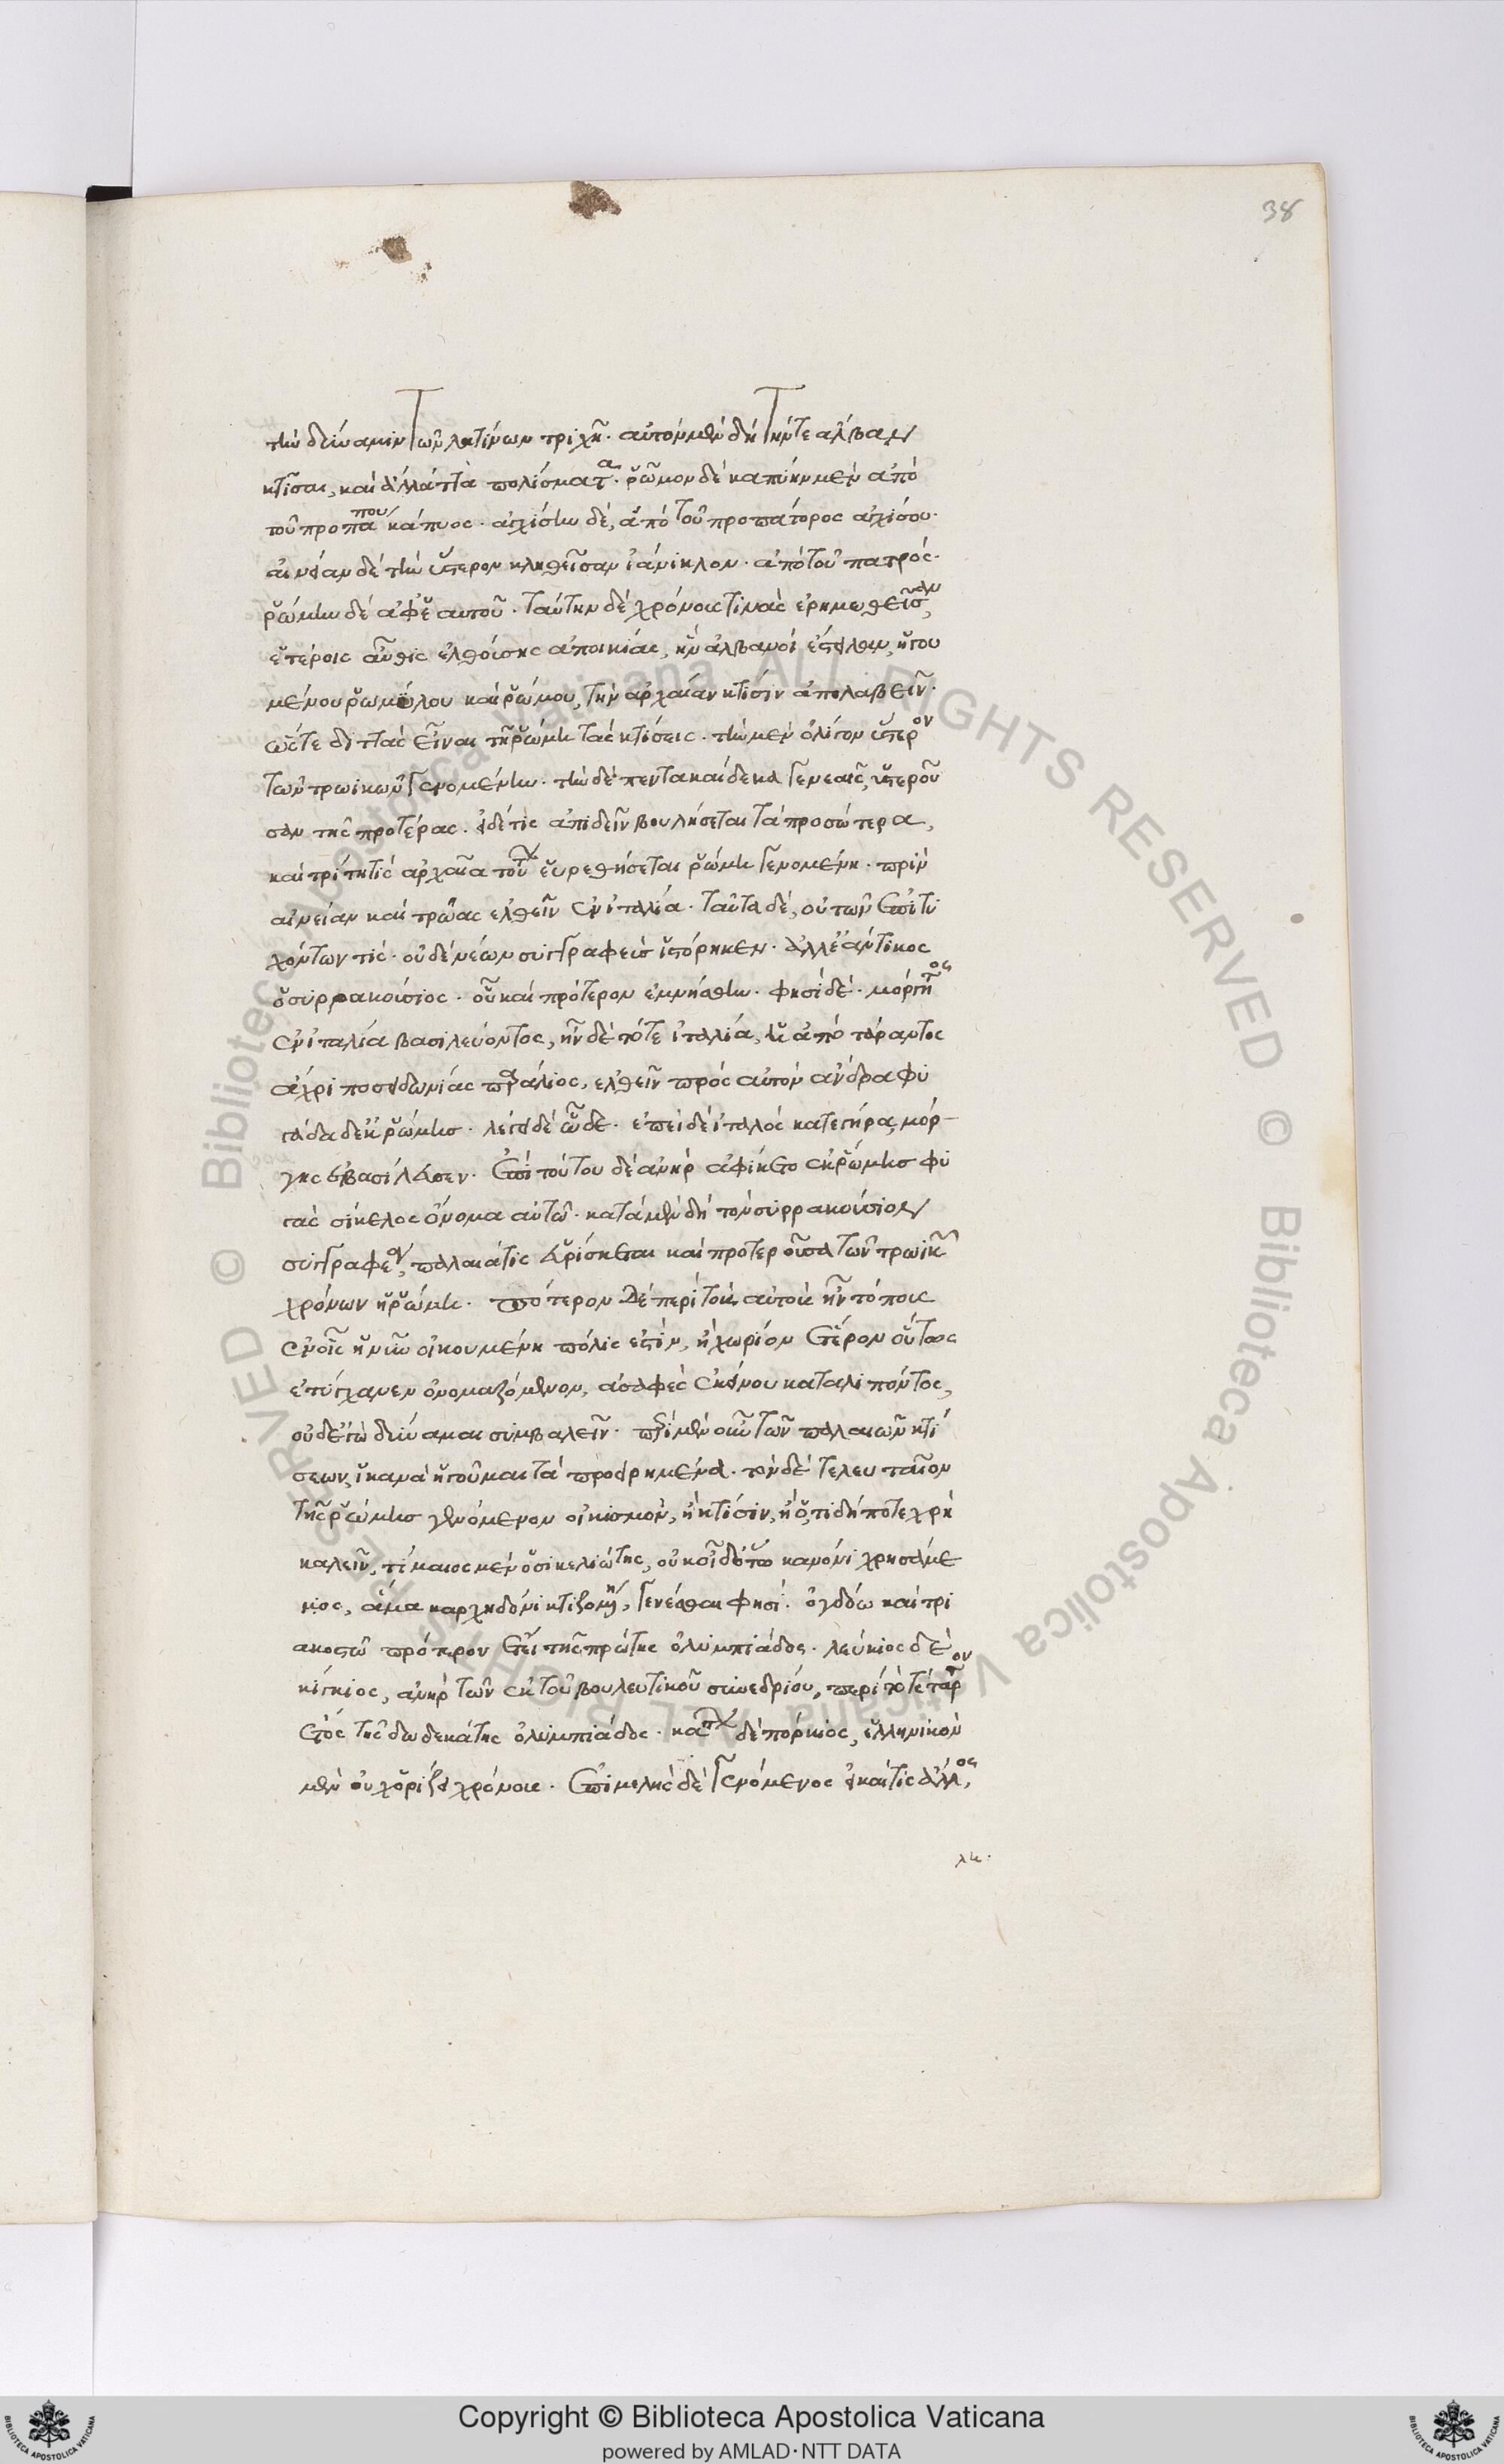 38
τὴν δύναμιν τῶν λατίνων τριχῆ. αὐτὸν μὲν δὴ τήντε ἄλβαν
κτίσαι, καὶ ἄλλάττα πολίσματα. ῥῶμον δὲ καπύην μὲν ἀπὸ
τοῦ προπάππου κάπυος. ἀγχίσην δὲ, ἀπὸ τοῦ προπάτορος ἀγχίσου.
αἰνείαν δὲ τὴν ὕστερον κληθεῖσαν ἰάνικλον. ἀπὸ τοῦ πατρός.
ῥώμην δὲ ἀφ' ἑαυτοῦ. ταύτην δὲ χρόνους τινὰς ἐρημωθεῖσαν,
ἑτέροις αὖθις ἐλθούσης ἀποικίας, ἣν ἀλβανοὶ ἔστειλαν, ἡγου
μένου ῥωμύλου καὶ ῥώμου, τὴν ἀρχαίαν κτίσιν ἀπολαβεῖν.
ὥστε διττὰς εἶναι τῆ ῥώμη τὰς κτίσεις. τὴν μὲν ὀλίγον ὕστερον
τῶν τρωϊκῶν γενομένην. τὴν δὲ πεντακαίδεκα γενεαῖς, ὑστεροῦ
σαν τῆς προτέρας. εἰ δέ τις ἀπιδεῖν βουλήσεται τὰ προσώτερα,
καὶ τρίτη τὶς ἀρχαία τούτων εὑρεθήσεται ῥώμη γενομένη. πρὶν
αἰνείαν καὶ τρῶας ἐλθεῖν ἐν ἰταλία. ταῦτα δὲ, οὐ τῶν ἐπιτυ
χόντων τίς. οὐδὲ νέων συγγραφεὺς ἱστόρηκεν. ἀλλ' ἀντίοχος
ὁ συρρακούσιος. οὗ καὶ πρότερον ἐμνήσθην. φησὶ δὲ. μόργητος
ἐν ἰταλία βασιλεύοντος, ἦν δὲ τότε ἰταλία, ἡ ἀπὸ τάραντος
ἄχρι ποσειδωνίας παράλιος, ἐλθεῖν πρὸς αὐτὸν ἄνδρα φυ
γάδα δ' ἐκ ῥώμης. λέγει δὲ ὧδε. ἐπεὶ δὲ ἰταλὸς κατεγήρα, μόρ-
γης ἐβασίλευσεν. ἐπὶ τούτου δὲ ἀνὴρ ἀφίκετο ἐκ ῥώμης φυ
γὰς σίκελος ὄνομα αὐτῶ. κατὰ μὲν δὴ τὸν συρρακούσιον
συγγραφέα, παλαιά τις εὑρίσκεται καὶ προτεροῦσα τῶν τρωϊκῶν
χρόνων ἡ ῥώμη. πότερον δὲ περὶ τοὺς αὐτοὺς ἦν τόπους
ἐν οἷς ἡ νῦν οἰκουμένη πόλις ἐστὶν, ἢ χωρίον ἕτερον οὕτως
ἐτύγχανεν ὀνομαζόμενον, ἀσαφὲς ἐκείνου καταλιπόντος,
οὐδ' ἐγὼ δύναμαι συμβαλεῖν. περὶ μὲν οὖν τῶν παλαιῶν κτί
σεων, ἱκανὰ ἡγοῦμαι τὰ προειρημένα. τὸν δὲ τελευταῖον
τῆς ῥώμης γενόμενον οἰκισμὸν, ἢ κτίσιν, ἢ ὅ,τι δήποτε χρὴ
καλεῖν, τίμαιος μὲν ὁ σικελιώτης, οὐκ οἶδ' ὅτω κανόνι χρησάμε
νος, ἅμα καρχηδόνι κτιζομένη, γενέσθαι φησί. ὀγδόω καὶ τρι
ακοστῶ πρότερον ἔτει τῆς πρώτης ὀλυμπιάδος. λεύκιος δὲ
κίγκιος, ἀνὴρ τῶν ἐκ τοῦ βουλευτικοῦ συνεδρίου, περὶ τὸ τέταρτον
ἔτος τῆς δωδεκάτης ὀλυμπιάδος. κάτων δὲ πόρκιος, ἑλληνικὸν
μὲν οὐχ ὁρίζει χρόνοις. ἐπιμελὴς δὲ γενόμενος εἰ καί τις ἄλλος,